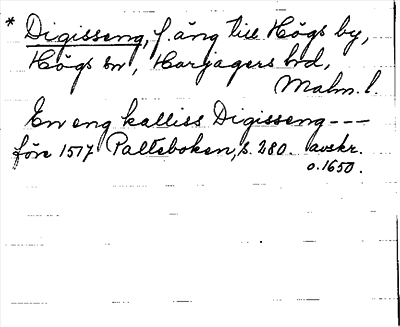 * Digisseng, f. äng till Högs by,
Högs sn, Harjagers hd,
Malm. l.
En eng kalliss Digisseng ---
före 1517 Palteboken, s. 280. avskr.
o. 1650.